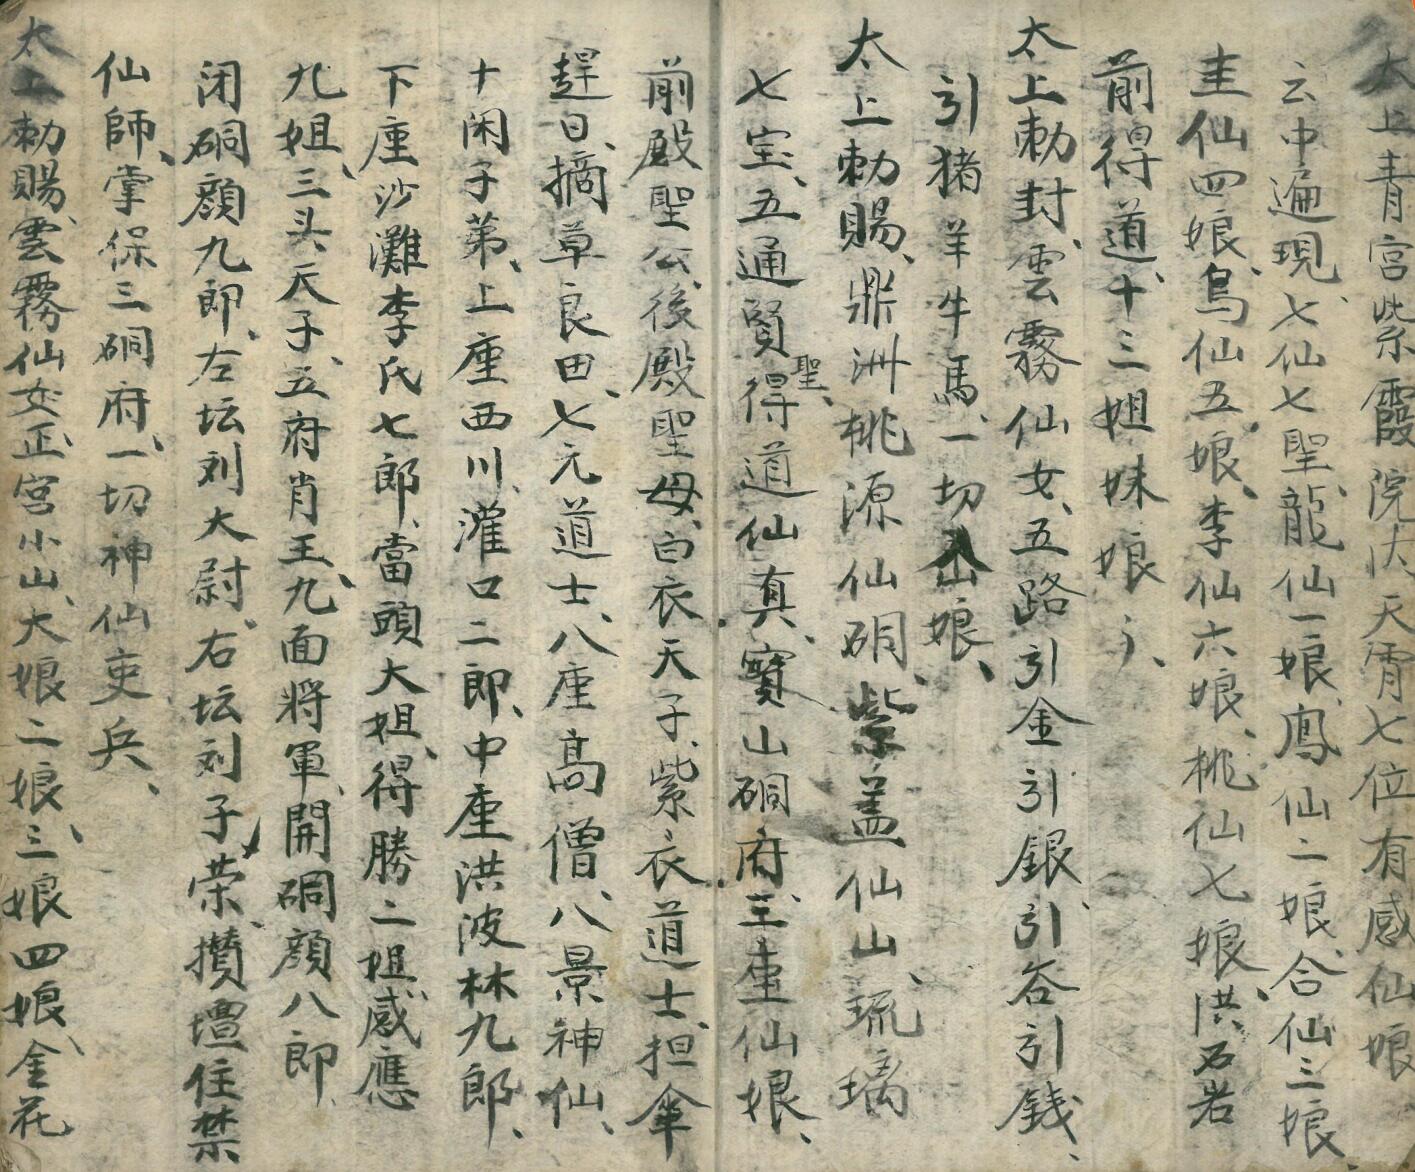 太上青宮紫霞院大天霄七位有感仙娘
云中遍現、七仙七聖、龍仙一娘、鳳仙二娘、合仙三娘
圭仙四娘、烏仙五娘、李仙六娘、桃仙七娘、洪石岩
前得道、十三姐妹娘〻、
太上勅封、雲霧仙女、五路引金引銀、引谷引銭、
引猪羊牛馬、一切山娘、
太上勅賜、鼎洲桃源仙硐、紫盖仙山、琉璃
七宝、五通賢聖、得道仙真、寶山硐府、三座仙娘、
前殿聖公、後殿聖母、白衣天子、紫衣道士、担傘
趕日、摘草良田、七元道士、八座高僧、八景神仙、
十閑子第、上座西川、灌口二郎、中座洪波林九郎、
下座沙灘李氏七郎、當頭大姐、得勝二姐、感應
九姐、三头天子、五府肖王、九面將軍、開硐顔八郎
闭硐顔九郎、左坛刘大尉、右坛刘子荣、攅壇住禁
仙師、掌保三硐府、一切神仙吏兵、
太上勅賜、雲霧仙女、正宮小山、大娘二娘、三娘四娘、金花